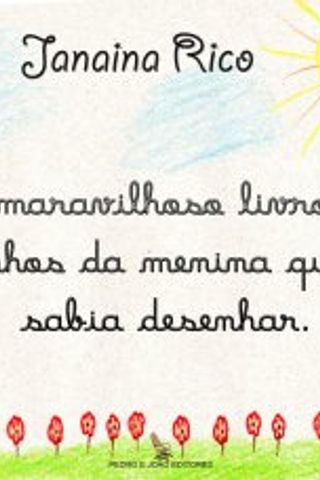 Janaina Rico
maravilhoso livro
nhos da menina qu
sabia desenhar.
PEDRO & JOÃO EDITORES